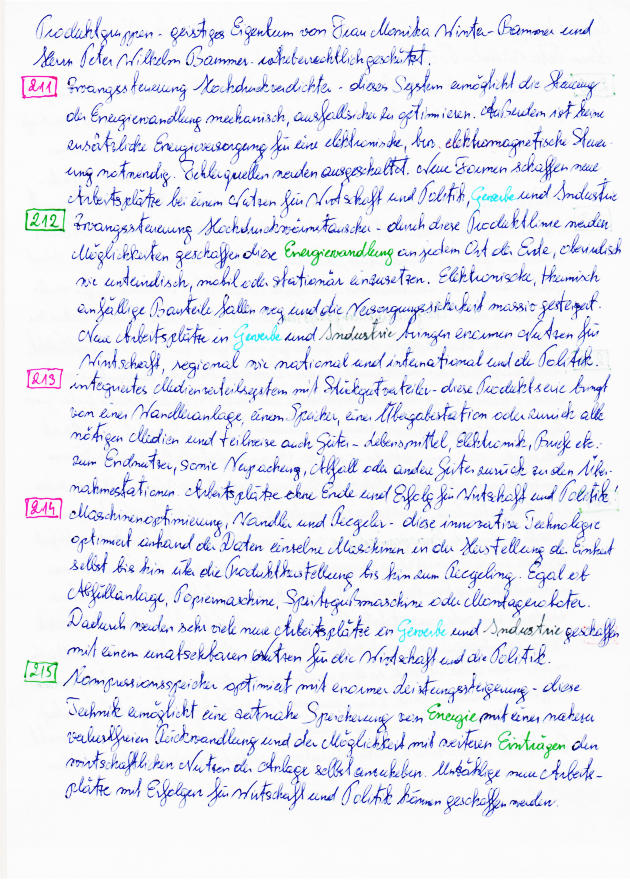 Produktgruppen - geistiges Eigentum von Frau Monika Winter-Bammer und
Herrn Peter Wilhelm Bammer - urheberrechtlich geschützt.
211 Zwangssteuerung Hochdruckverdichter - dieses System ermöglicht die Steuerung
der Energiewandlung mechanisch, ausfallsicher zu optimieren. Außerdem ist keine
zusätzliche Energieversorgung für eine elektronische, bzw. elektromagnetische Steuer-
ung notwendig. Fehlerquellen werden ausgeschaltet. Neue Formen schaffen neue
Arbeitsplätze bei einem Nutzen für Wirtschaft und Politik, Gewerbe und Industrie
212 Zwangssteuerung Hochdruckwärmetauscher - durch diese Produktlinie werden
Möglichkeiten geschaffen diese Energiewandlung an jedem Ort der Erde, oberirdisch
wie unterirdisch, mobil oder stationär einzusetzen. Elektronische, thermisch
anfällige Bauteile fallen weg und die Versorgungssicherheit massiv gesteigert.
Neue Arbeitsplätze in Gewerbe und Industrie bringen enormen Nutzen für
Wirtschaft, regional wie national und international und der Politik.
213 integriertes Medienverteilsystem mit Stückgutverteiler - diese Produktserie bringt
von einer Wandleranlage, einem Speicher, einer Übergabestation oder zurück alle
nötigen Medien und teilweise auch Güter - Lebensmittel, Elektronik, Briefe etc.
zum Endnutzer, sowie Verpackung, Abfall oder andere Güter zurück zu den Über-
nahmestationen. Arbeitsplätze ohne Ende und Erfolg für Wirtschaft und Politik!
214 Maschinenoptimierung, Wandler und Recycler - diese innovative Technologie
optimiert anhand der Daten einzelne Maschinen in der Herstellung der Einheit
selbst bis hin über die Produktherstellung bis hin zum Recycling. Egal ob
Abfüllanlage, Papiermaschine, Spritzgußmaschine oder Montageroboter.
Dadurch werden sehr viele neue Arbeitsplätze in Gewerbe und Industrie geschaffen
mit einem unabsehbaren Nutzen für die Wirtschaft und die Politik.
215 Kompressionsspeicher optimiert mit enormer Leistungssteigerung - diese
Technik ermöglicht eine zeitnahe Speicherung von Energie mit einer nahezu
verlustfreien Rückwandlung und der Möglichkeit mit weiteren Einträgen den
wirtschaftlichen Nutzen der Anlage selbst anzuheben. Unzählige neue Arbeits-
plätze mit Erfolgen für Wirtschaft und Politik können geschaffen werden.